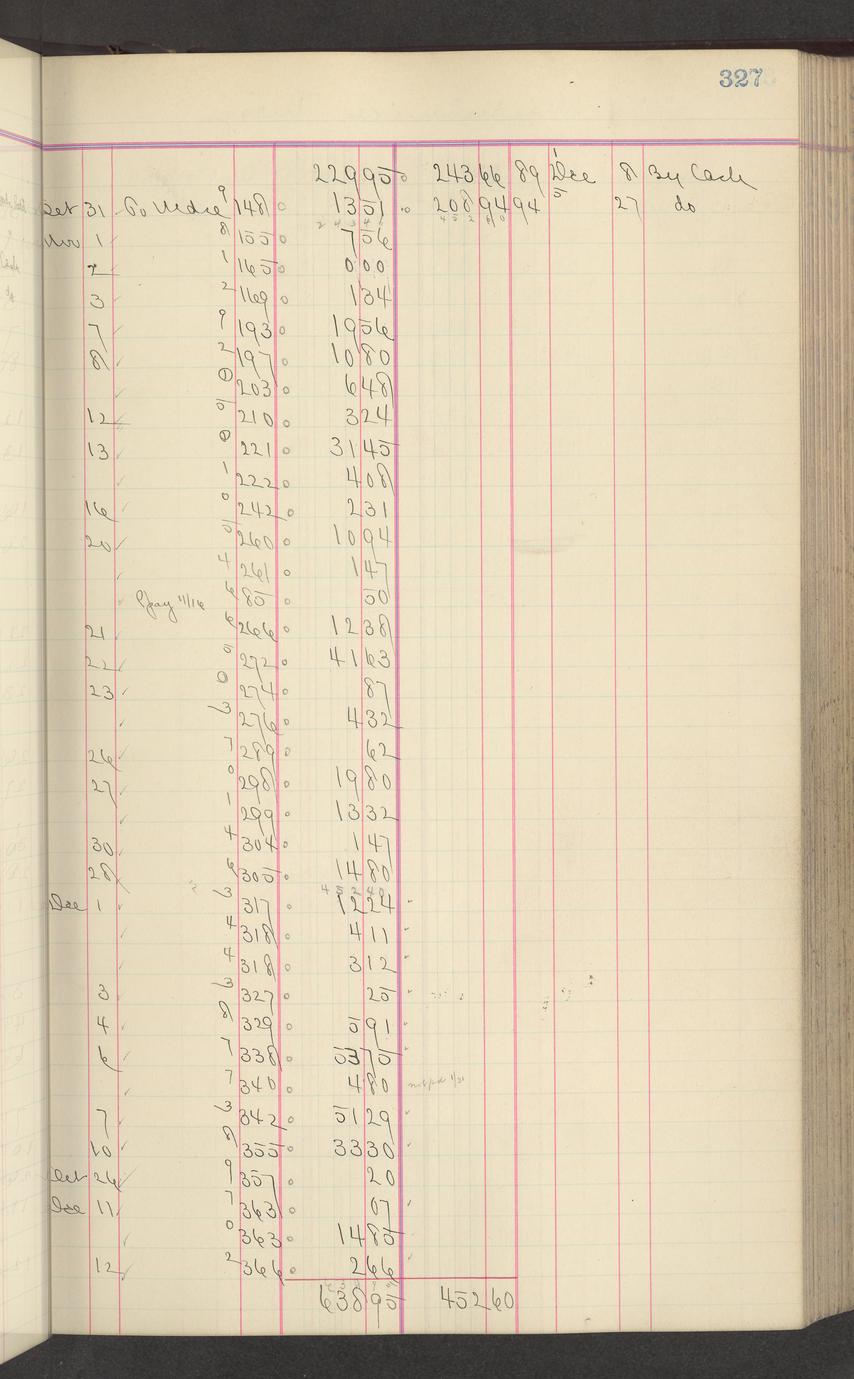 327
22995 24366 89 Dec 8 By Cash
Oct 31 To Mdse 9 148 1351 20894 94 5 27 do
Nov 1 8 155 756
2 1 165 000
3 2 169 134
7 9 193 1956
8 2 197 1080
0 203 648
12 5 210 324
13 0 221 3145
1 222 408
16 0 242 231
20 5 260 1094
4 261 147
11/16 6 85 50
21 6 266 1238
22 5 272 4163
23 0 274 87
3 276 432
26 7 289 62
27 0 298 1980
1 299 1332
30 4 304 147
28 6 305 1480
45240
Dec 1 3 317 1224
4 318 411
4 318 312
3 3 327 25
4 8 329 591
6 7 338 5375
7 340 480 1/31
7 3 342 5129
10 8 355 3330
Oct 26 9 357 20
Dec 11 7 363 07
0 363 1485
12 2 366 266
63895 45260